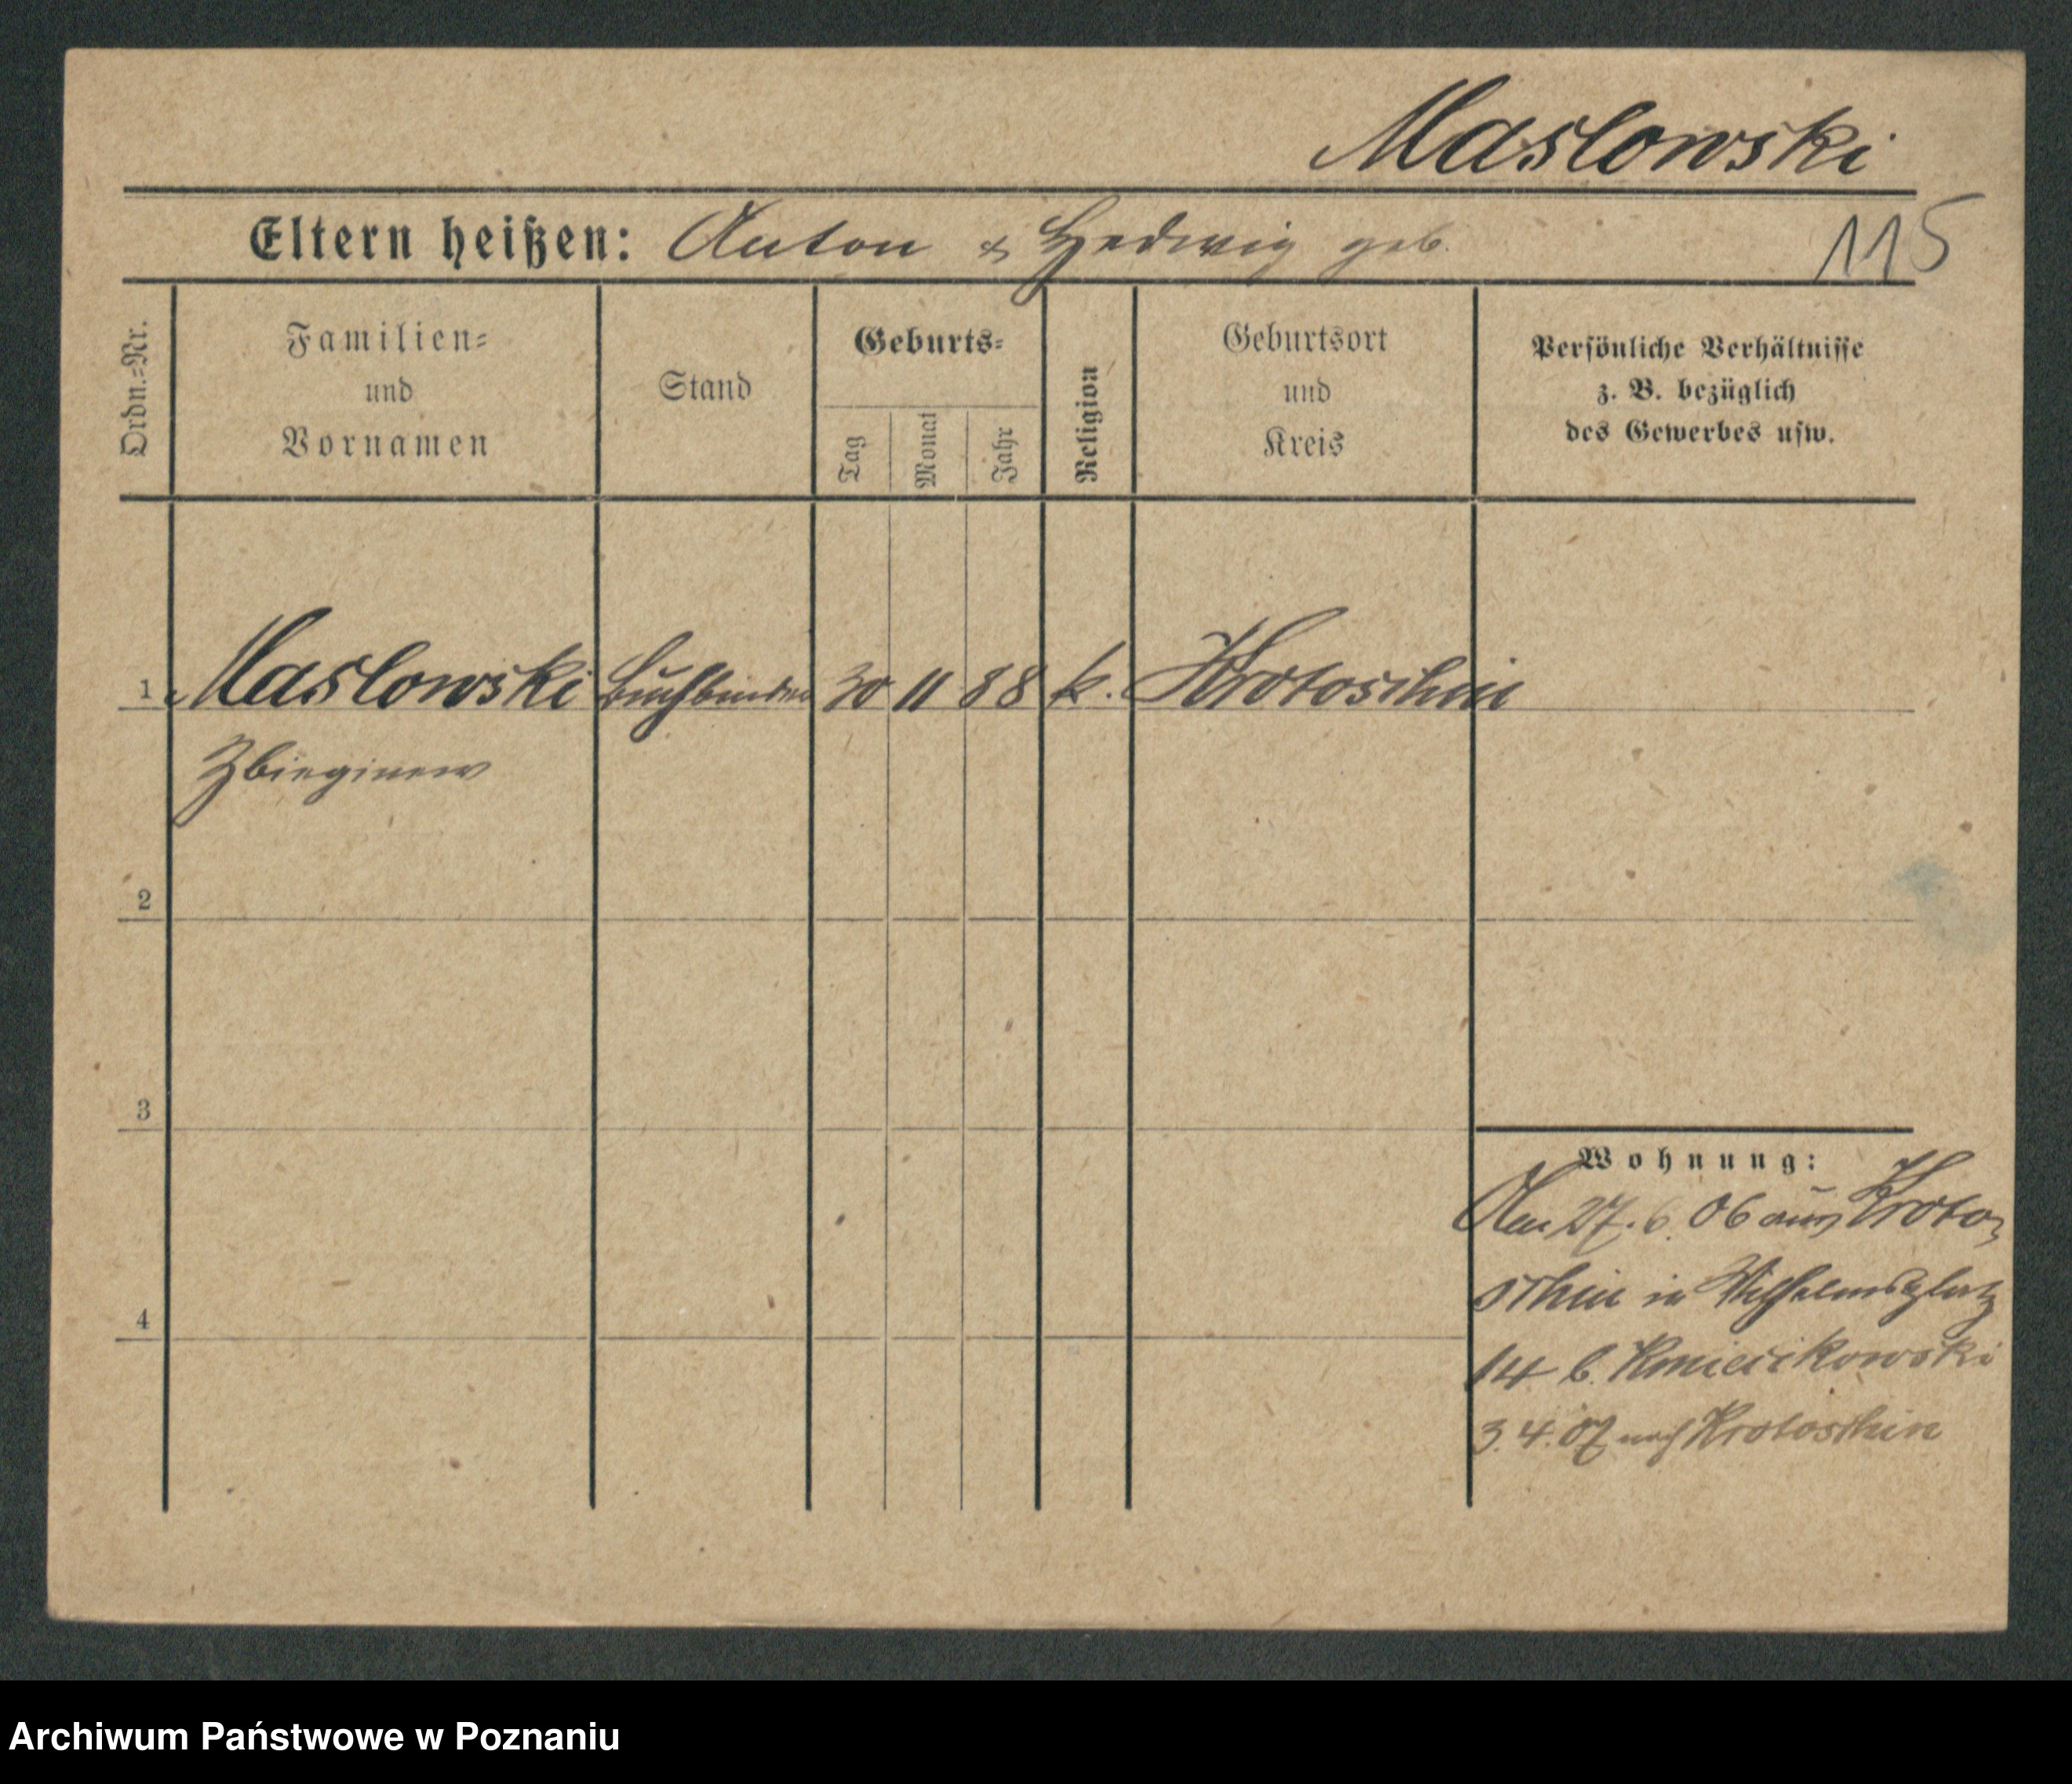 Maslowski
Eltern heißen: Anton & Hedwig geb.
115
Ordn.=Nr.
Familien=
und
Vornamen
Stand
Geburts=
Tag
Monat
Jahr
Religion
Geburtsort
und
Kreis
Persönliche Verhältnisse
z. B. bezüglich
des Gewerbes usw.
1 Maslowski Buchbinder 30 11 88 k. Krotoschin
Zbieginew
2
3
4
Wohnung:
Den 27.6.06 aus Kroto=
schin in Wilhelmsplatz
14 b. Kmiecikowski
3.4.07 nach Krotoschin
Archiwum Państwowe w Poznaniu